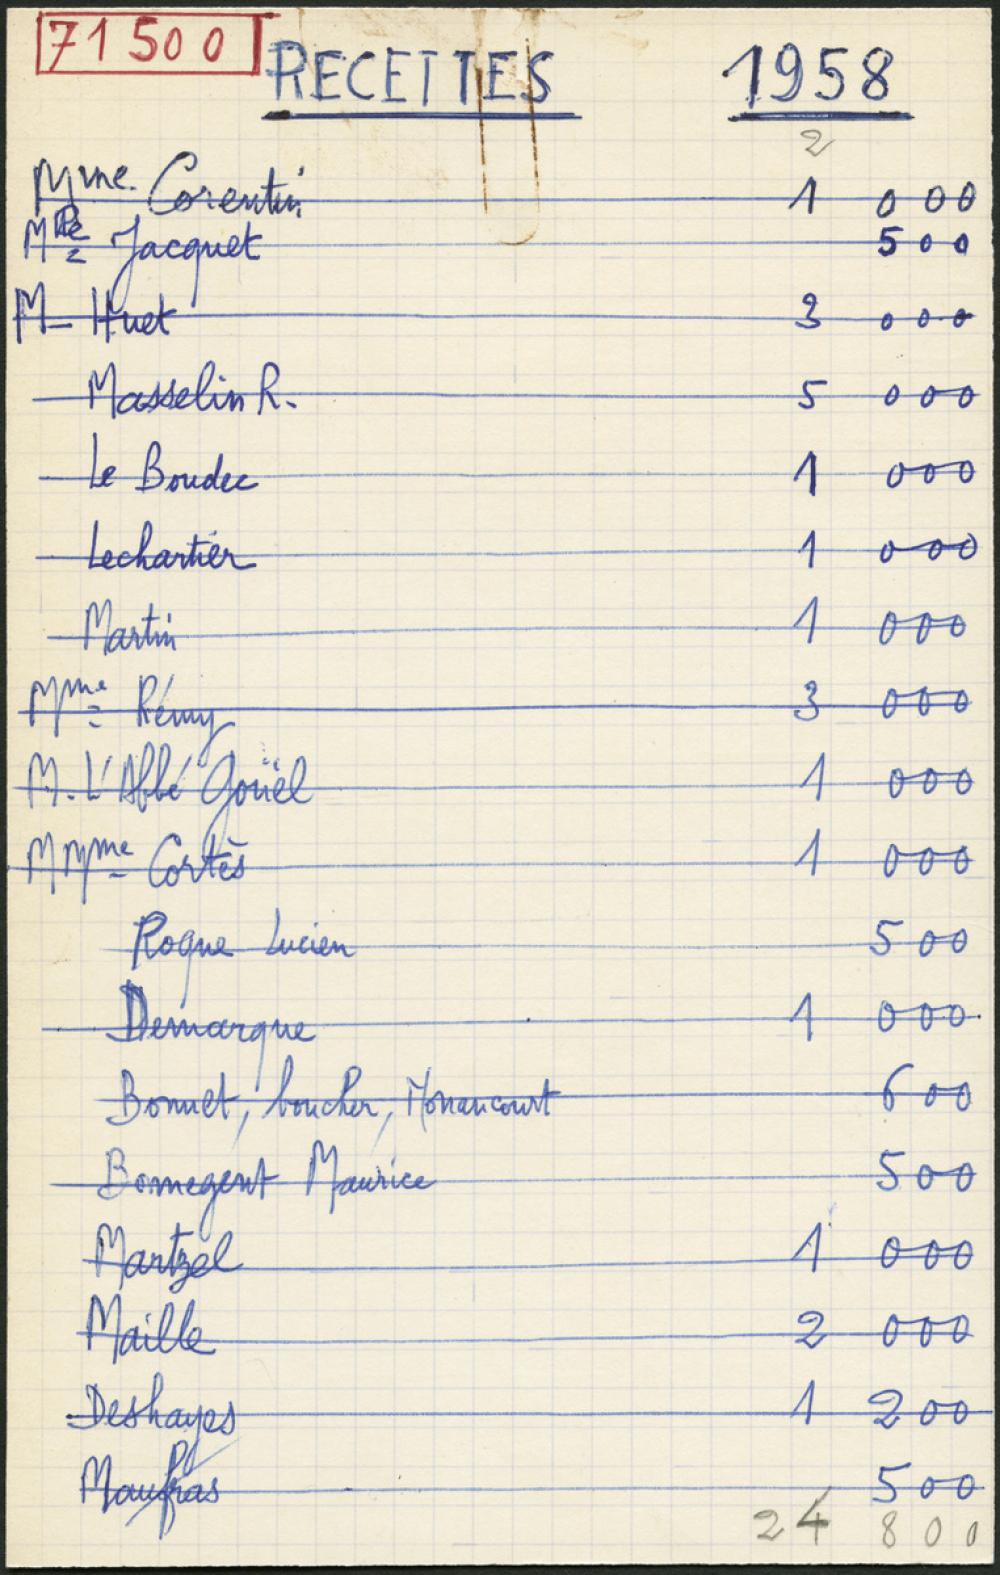 71 500
RECETTES 1958
2
Mme. Corentin 1 000
Mlle Jacquet 500
M- Huet 3 000
Masselin R. 5 000
Le Boudec 1 000
Lechartier 1 000
Martin 1 000
Mme Rémy 3 000
M. L'Abbé Goüel 1 000
M Mme Cortès 1 000
Roque Lucien 500
Demarque 1 000
Bonnet, boucher, 600
Bomegent Maurice 500
Martzel 1 000
Maille 2 000
Deshayes 1 200
Maufras 500
24 800